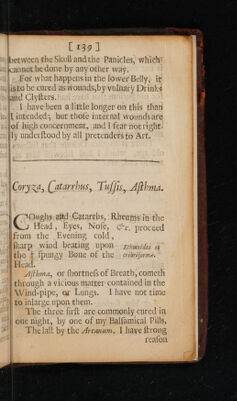 [ 139 ]
between the Skull and the Panicles, which
cannot be done by any other way.
For what happens in the lower Belly, it
is to be cured as wounds, by vulnary Drinks
and Clysters.
I have been a little longer on this than
I intended; but those internal wounds are
of high concernment, and I fear not right-
ly understood by all pretenders to Art.
Coryza, Catarrhus, Tussis, Asthma.
Coughs and Catarrhs, Rheums in the
Head, Eyes, Nose, &c. proceed
from the Evening cold,
sharp wind beating upon
the ‡ spungy Bone of the
Head.
Ethmoides or
cribriforme.
Asthma, or shortness of Breath, cometh
through a vicious matter contained in the
Wind-pipe, or Lungs. I have not time
to inlarge upon them.
The three first are commonly cured in
one night, by one of my Balsamical Pills.
The last by the Arcanum. I have strong
reason